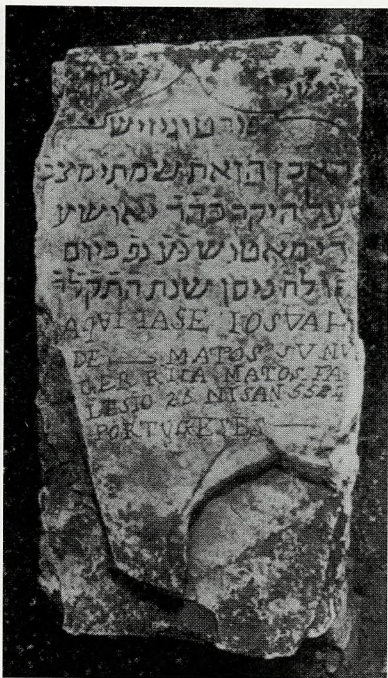 פורטוגיזיש
האבן הזאת שמתי מצב
על היקר כהר יאושע
די מאטוש שנע נפ ביום
לח ניסן שנת התקלד
AQVI IASE IOSVAH
DE MATOS SV MV
GER RICA MATOS FA
LESIO 26 NISAN
PORTVGESES